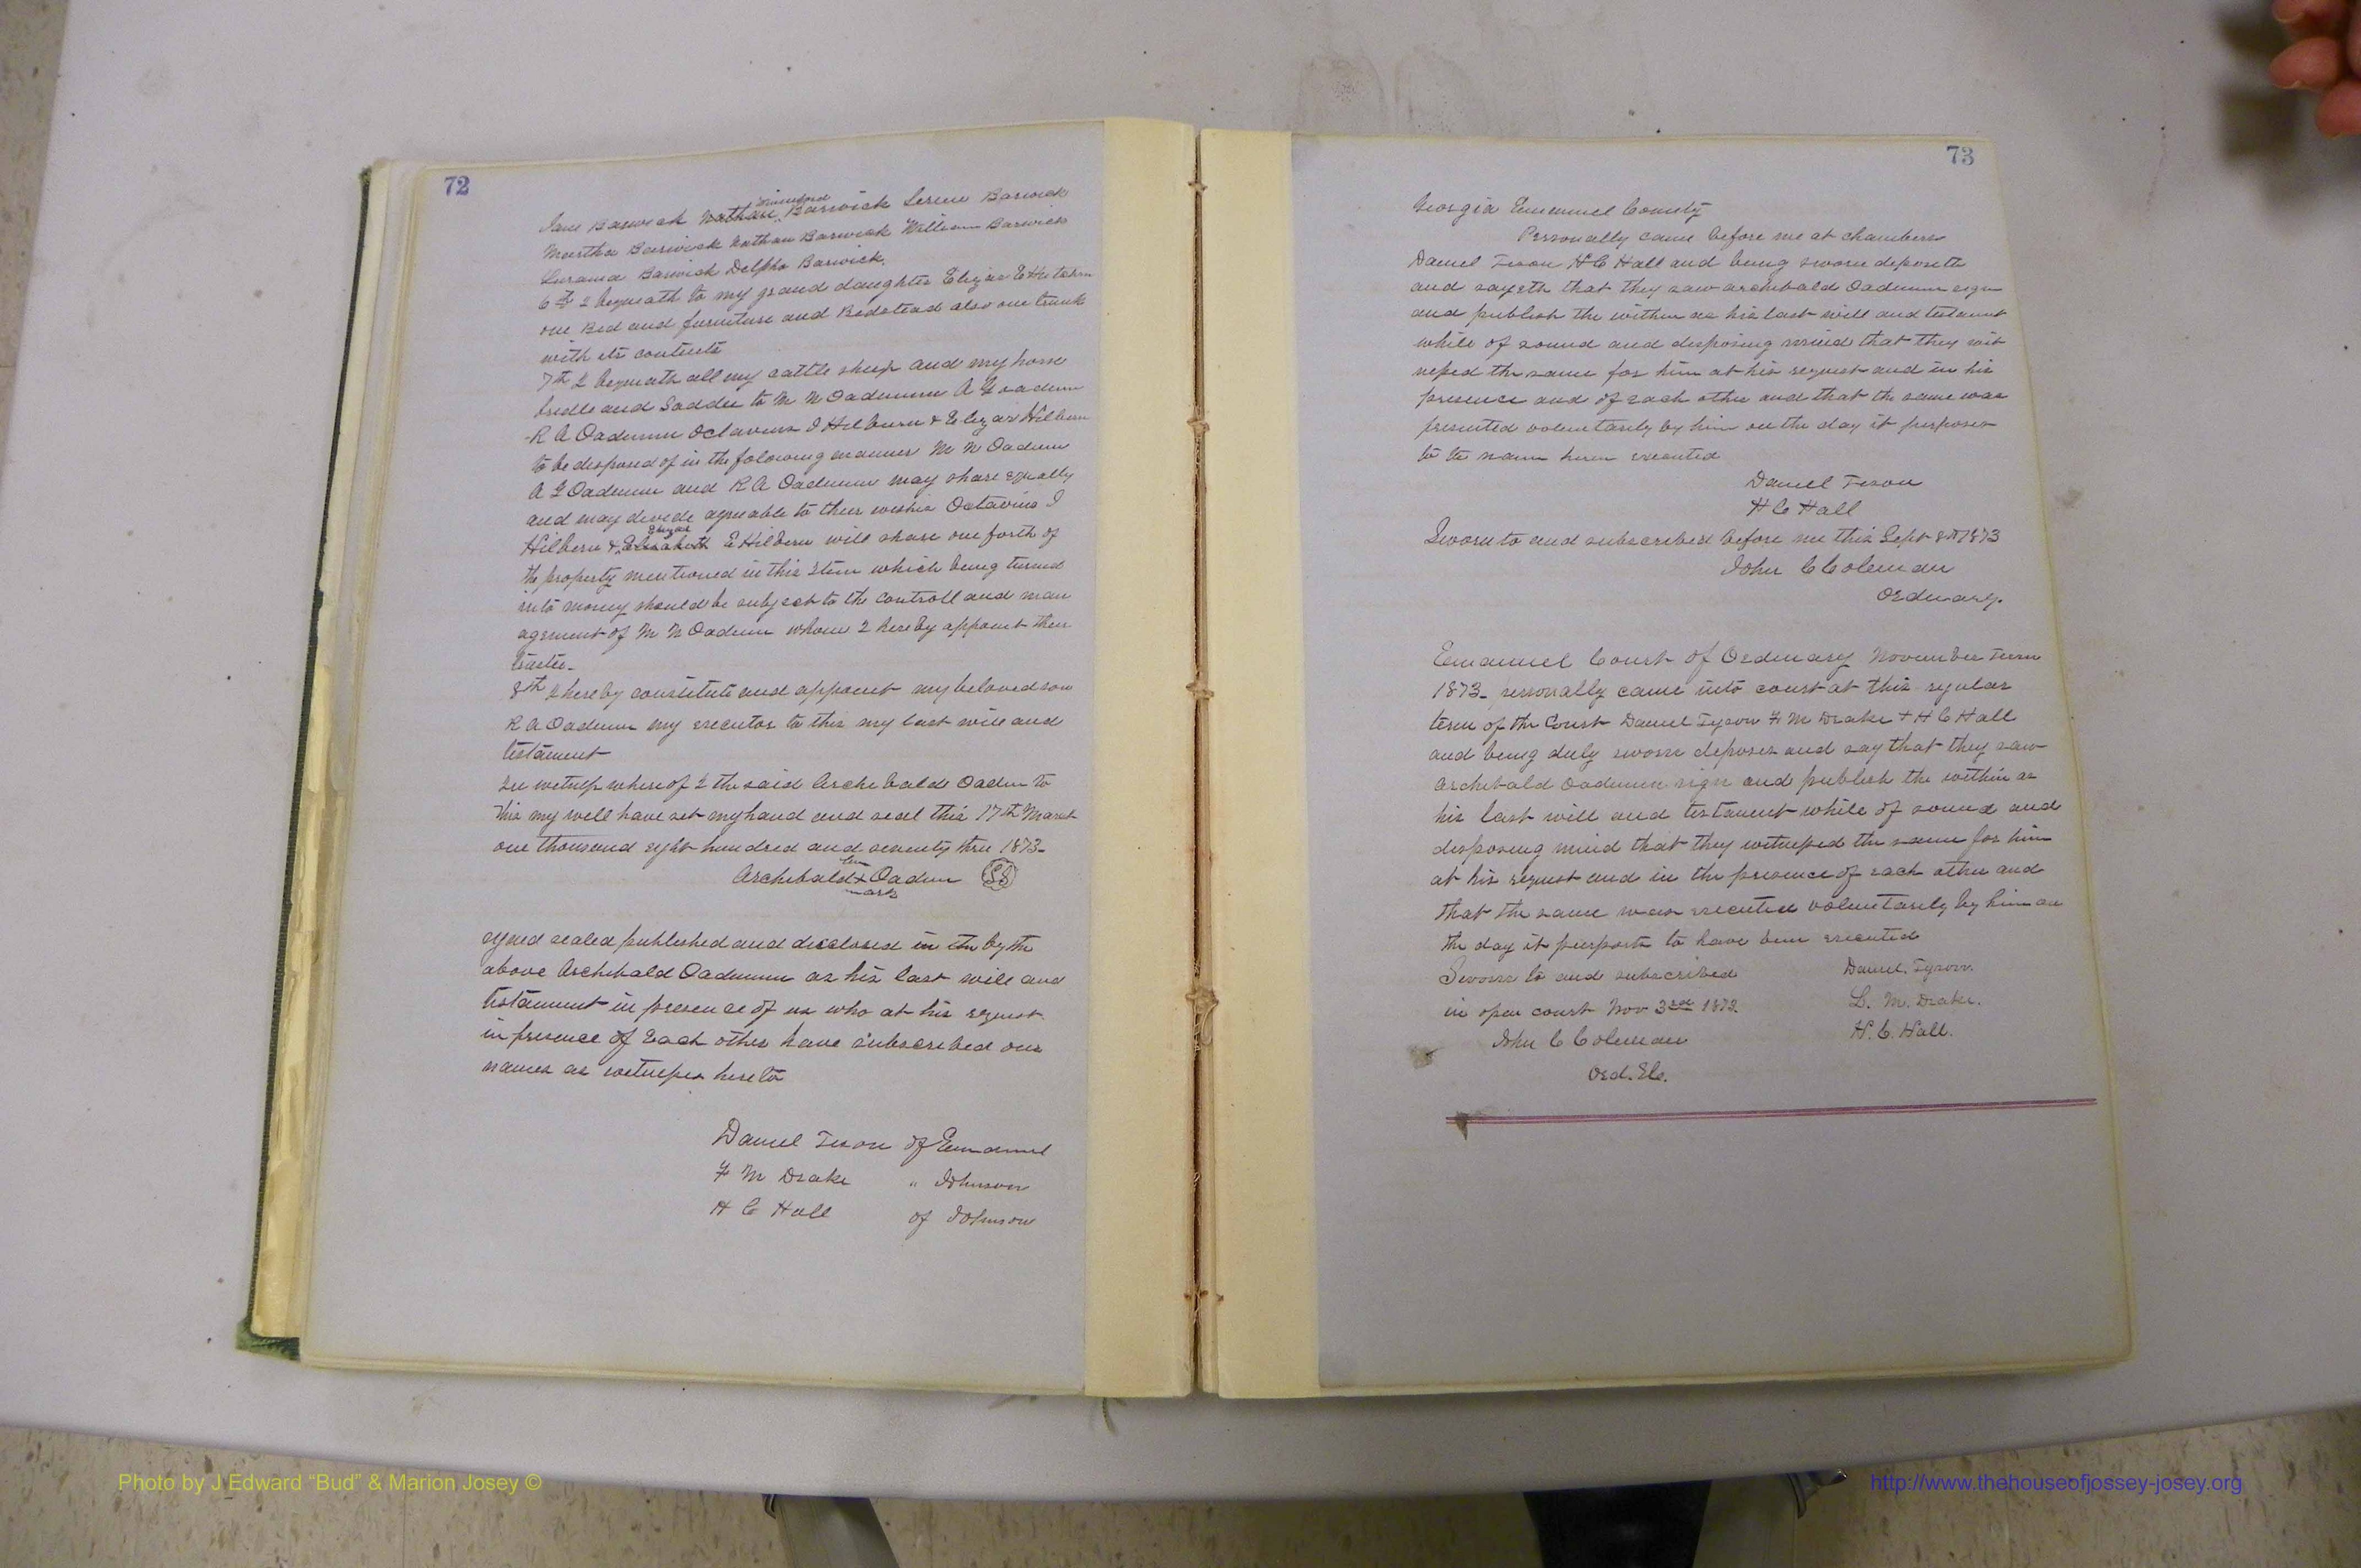 72
Jane Barwick Nathan Winniford Barwick Serene Barwick
Martha Barwick Nathan Barwick William Barwick
Lurania Barwick Delpha Barwick.
6th I bequeath to my grand daughter Elizar E
one Bed and furniture and Bedstead also one trunk
with its contents
7th I bequeath all my cattle sheep and my horse
bridle and Saddle to M N Oadumn A L Oadum
R A Oadumn Octavius I Hilburn & Elizar Hilburn
to be disposed of in the folowing manner M N Oadum
A L Oadumn and R A Oadumn may share equally
and may devide agreeable to their wishis Octavius I
Hilbern & Elizabeth Elizar E Hilbern will share one forth of
the property mentioned in this Item which being turned
into money should be subject to the Controll and man
agement of M N Oadum whom I hereby appoint their
trustee.
8th I hereby constitute and appoint my beloved son
R A Oadum my executor to this my last will and
testament
In witness whereof I the said Archebald Oadum to
this my well have set my hand and seal this 17th March
one thousand eght hundred and seventy three 1873.
Archibald his x mark Oadum SS
signed sealed published and disclosed in by the
above Archibald Oadumn as his last will and
testament in presence of us who at his request
in presence of Each other have subscribed our
names as witnesses hereto
Daniel Tison of Emanuel
F M Drake " Johnson
H C Hall of Johnson
73
Georgia Emanuel County
Personally came before me at chambers
Daniel Tison H C Hall and being sworn deposeth
and sayeth that they saw Archibald Oadumn sign
and publish the within as his last will and testament
while of sound and disposing mind that they wit
nessed the same for him at his request and in his
presence and of each other and that the same was
presented voluntarily by him on the day it purposes
to the same been executed
Daniel Tison
H C Hall
Sworn to and subscribed before me this Sept 8th 1873
John C Coleman
Ordinary.
Emanuel Court of Ordinary November Term
1873. personally came into court at this regular
term of the Court Daniel Tyson F M Drake + H C Hall
and being duly sworn deposes and say that they saw
Archibald Oadumn sign and publish the within as
his last will and testament while of sound and
disposing mind that they witnessed the same for him
at his request and in the presence of each other and
that the same was executed voluntarily by him on
the day it purports to have been executed
Sworn to and subscribed Daniel. Tyson.
in open court Nov 3rd 1873. L. M. Drake.
John C Coleman H. C. Hall.
Ord. E.C.
Photo by J Edward “Bud” & Marion Josey ©
http://www.thehouseofjossey-josey.org